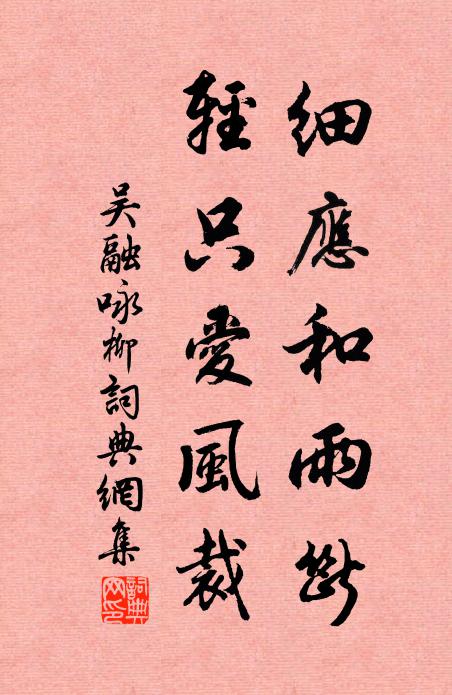 細應和雨斷
輕只愛風裁
吳融咏柳詞典網集
詞典網印